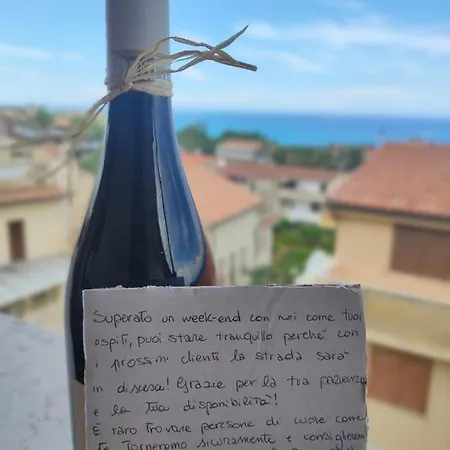 Superato un week-end con noi come tuoi
ospiti, puoi stare tranquillo perché con
i prossimi clienti la strada sarà
in discesa! Grazie per la tua pazienza
e la tua disponibilità!
È raro trovare persone di cuore come
te. Torneremo sicuramente e consiglieremo